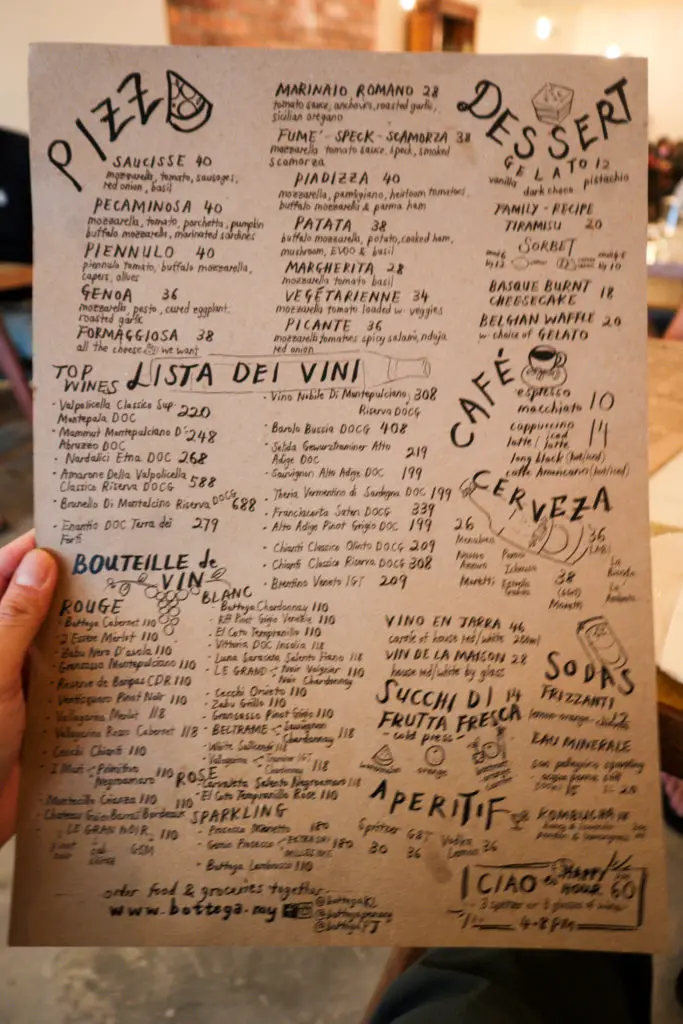 PIZZA
SAUCISSE 40
mozzarella, tomato, sausages,
red onion, basil
PECAMINOSA 40
mozzarella, tomato, porchetta, pumpkin
buffalo mozzarella, marinated sardines
PIENNULO 40
piennulo tomato, buffalo mozzarella,
capers, olives
GENOA 36
mozzarella, pesto, cured eggplant,
roasted garlic
FORMAGGIOSA 38
all the cheese we want
MARINAIO ROMANO 28
tomato sauce, anchovies, roasted garlic,
sicilian oregano
FUMÉ - SPECK - SCAMORZA 38
mozzarella tomato sauce, speck, smoked
scamorza
PIADIZZA 40
mozzarella, parmigiano, heirloom tomatoes,
buffalo mozzarella & parma ham
PATATA 38
buffalo mozzarella, potato, cooked ham,
mushroom, EVOO & basil
MARGHERITA 28
mozzarella tomato basil
VEGÉTARIENNE 34
mozzarella tomato loaded w. veggies
PICANTE 36
mozzarella tomatoes spicy salami, nduja
red onion
DESSERT
GELATO 12
vanilla dark choco pistachio
FAMILY-RECIPE
TIRAMISU 20
SORBET
BASQUE BURNT
CHEESECAKE 18
BELGIAN WAFFLE 20
w. choice of GELATO
TOP
WINES
LISTA DEI VINI
Valpolicella Classico Sup.
Montepala DOC 220
Mammut Montepulciano D'
Abruzzo DOC 248
Nardalici Etna DOC 268
Amarone Della Valpolicella
Classico Riserva DOCG 588
Brunello Di Montalcino Riserva DOCG 688
Enantio DOC Terra dei
Forti 279
Vino Nobile Di Montepulciano 308
Riserva DOCG
Barolo Bussia DOCG 408
Selida Gewurztraminer Alto
Adige DOC 219
Sauvignon Alto Adige DOC 199
Theria Vermentino di Sardegna DOC 199
Franciacorta Saten DOCG 339
Alto Adige Pinot Grigio DOC 199
Chianti Classico Olinto DOCG 209
Chianti Classico Riserva DOCG 308
Brentino Veneto IGT 209
CAFÉ
espresso
macchiato 10
cappuccino
latte / iced
latte 14
long black (hot/iced)
caffe Americano (hot/iced)
CERVEZA
26
Menabrea
Moretti
Estrella
36
38
Moretti
La
La
BOUTEILLE de
VIN
ROUGE
Bottega Cabernet 110
2 Essere Merlot 110
Zabu Nero D'avola 110
Gransasso Montepulciano 110
Reserve de Bonpas CDR 110
Ventisquero Pinot Noir 110
Vallagarina Merlot 118
Vallagarina Rosso Cabernet 118
Cecchi Chianti 110
I Muri Primitivo
Negroamaro 110
Montecillo Crianza 110
Bordeaux 110
LE GRAN NOIR 110
pinot
noir
GSM
BLANC
Bottega Chardonnay 110
Pinot Grigio Venezie 110
El Coto Tempranillo 110
Vittoria DOC Insolia 118
Luna Saracena Salento Fiano 118
LE GRAND Noir Viognier
Noir Chardonnay 110
Cecchi Orvieto 110
Zabu Grillo 110
Gransasso Pinot Grigio 110
BELTRAME Sauvignon
Chardonnay 118
White 118
Vallagarina
Chardonnay 118
ROSE
Salento Negroamaro 118
El Coto Tempranillo Rose 110
SPARKLING
Prosecco 180
Prosecco 180
Bottega Lambrusco 110
VINO EN JARRA 46
carafe of house red/white 250ml
VIN DE LA MAISON 28
house red/white by glass
SUCCHI DI 14
FRUTTA FRESCA
- cold press -
watermelon
orange
SODAS
FRIZZANTI
EAU MINERALE
san pellegrino sparkling
acqua panna still
15
20
APERITIF
Spritzer 30
G&T 36
Vodka
Lemon 36
KOMBUCHA
CIAO Happy
HOUR 60
3 spritzer or 3 glasses of wine
4-8 PM
order food & groceries together
www.bottega.my
@bottegaKL